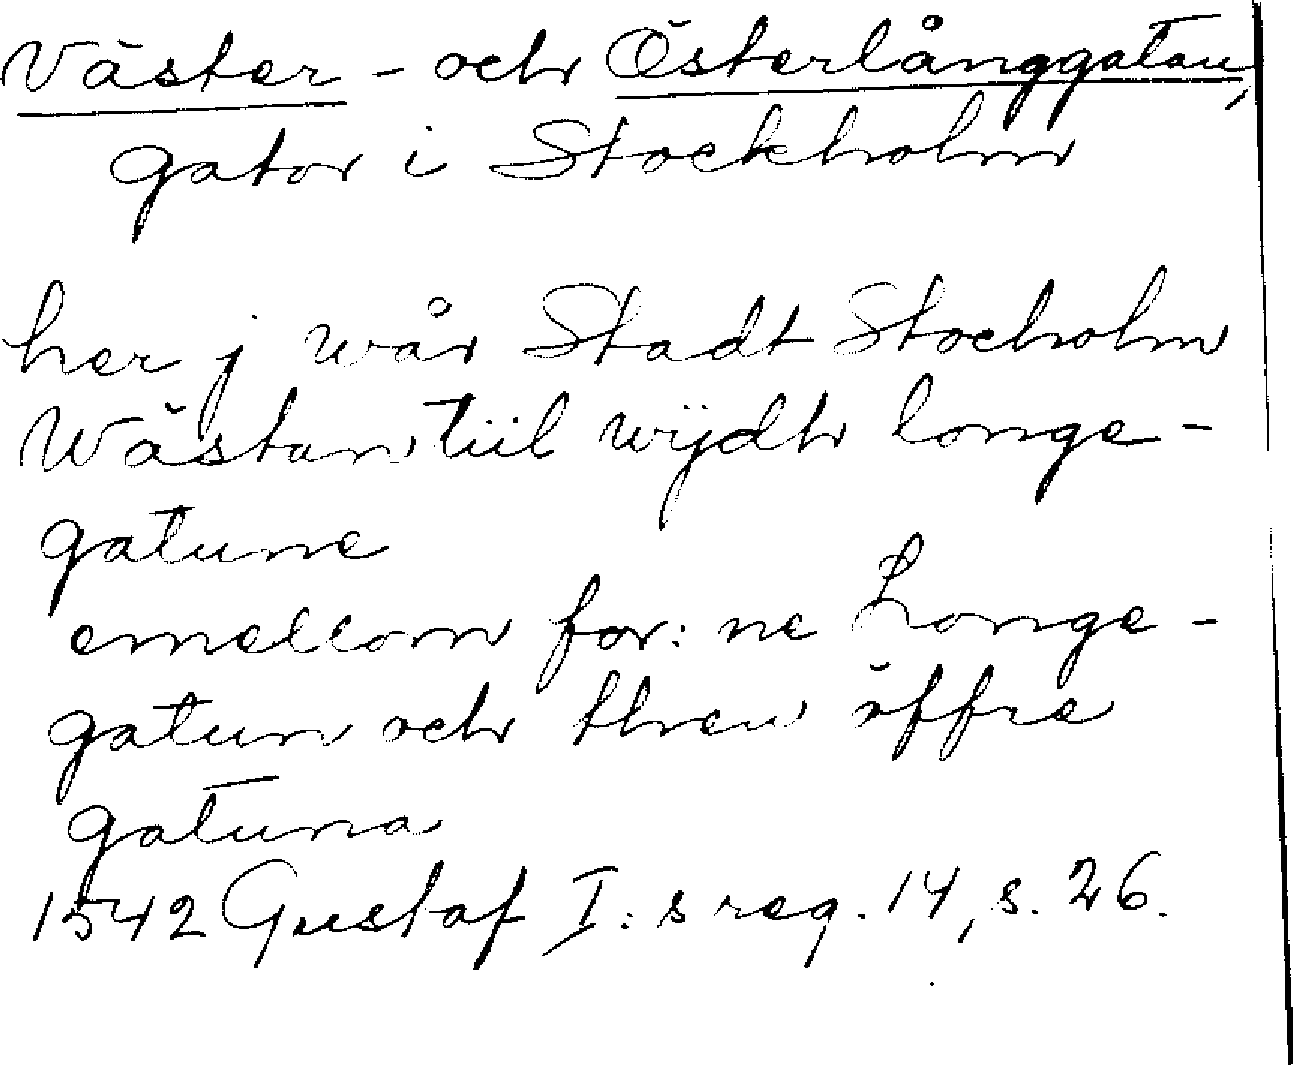 Väster- och Österlånggatan,
gator i Stockholm
her j wår Stadt Stocholm
Wästan tiil wijdh longe-
gatune
emellom for: ne Longe-
gatun och then öffre
gatuna
1542 Gustaf I: s reg. 14, s. 26.